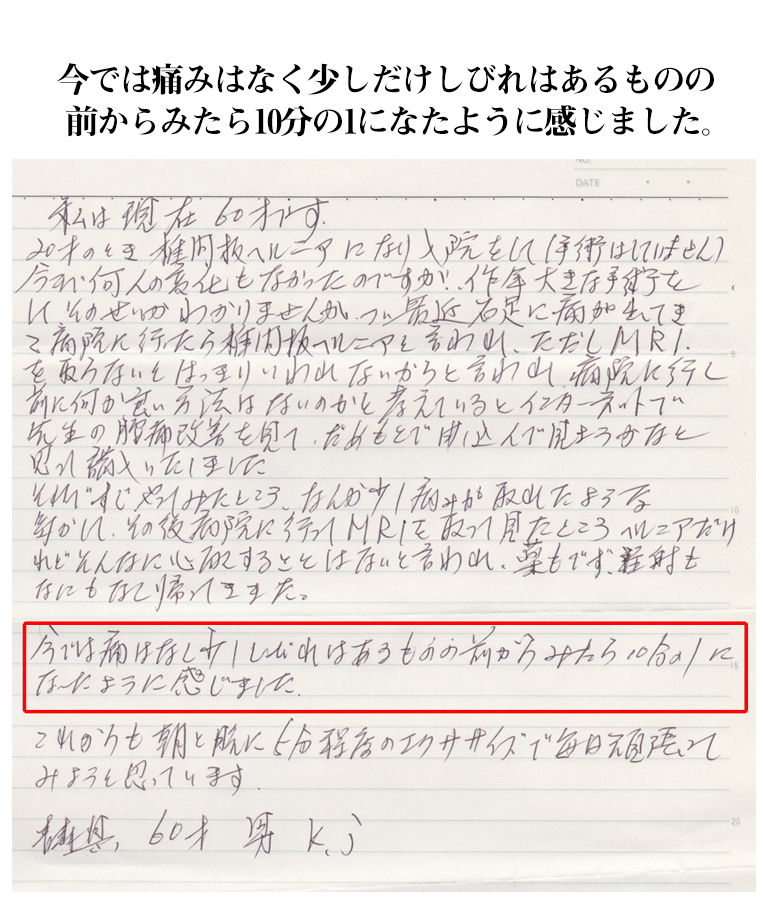 今では痛みはなく少しだけしびれはあるものの
前からみたら10分の1になたように感じました。
NO.
DATE
私は現在60才です.
20才のとき椎間板ヘルニアになり入院をして(手術はしていません)
今まで何の変化もなかったのですが!、作年大きな手術を
して そのせいか わかりませんが、つい最近 右足に痛が出てき
て病院に行ったら椎間板ヘルニアと言われ、ただしMRI.
を取らないとはっきりいわれないからと言われ、病院に行く
前に何か良い方法はないのかと考えているとインターネットで
先生の腰痛改善を見て、だめもとで申し込んで見ようかなと
思って購入いたしました
それですぐやってみたところ、なんか少し痛みが取れたような
気がして、その後病院に行ってMRIを取って見たところヘルニアだけ
れどそんなに心配することはないと言われ、薬もでず、注射も
なにもなく帰ってきました。
今では痛はなく少ししびれはあるものの前からみたら10分の1に
なったように感じました.
これからも朝と晩に5分程度のエクササイズで毎日頑張って
みようと思っています.
60才 男 K.j
5
10
15
20